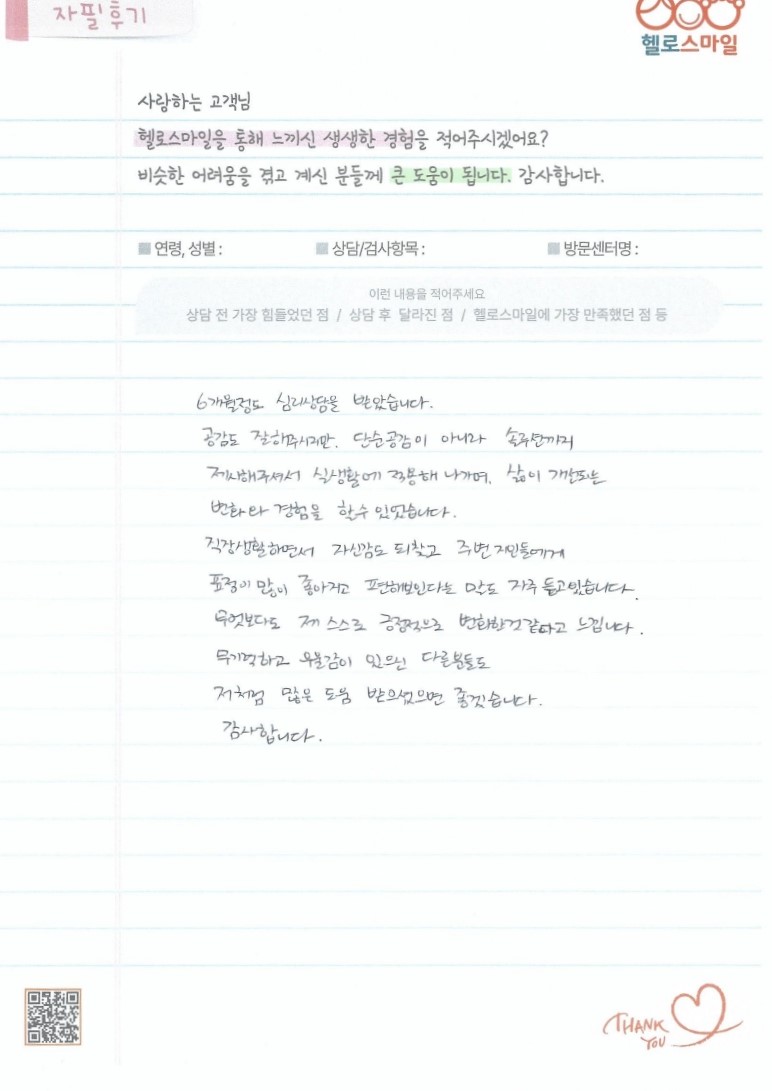 자필후기
헬로스마일
사랑하는 고객님
헬로스마일을 통해 느끼신 생생한 경험을 적어주시겠어요?
비슷한 어려움을 겪고 계신 분들께 큰 도움이 됩니다. 감사합니다.
연령, 성별 : 상담/검사항목 : 방문센터명 :
이런 내용을 적어주세요
상담 전 가장 힘들었던 점 / 상담 후 달라진 점 / 헬로스마일에 가장 만족했던 점 등
6개월정도 심리상담을 받았습니다.
공감도 잘해주시지만, 단순공감이 아니라 솔루션까지
제시해주셔서 실생활에 적용해 나가며, 삶이 개선되는
변화와 경험을 할수 있었습니다.
직장생활하면서 자신감도 되찾고 주변 지인들에게
표정이 많이 좋아지고 편해보인다는 말도 자주 듣고있습니다.
무엇보다도 제 스스로 긍정적으로 변화한것 같다고 느낍니다.
무기력하고 우울감이 있으신 다른분들도
저처럼 많은 도움 받으셨으면 좋겠습니다.
감사합니다.
THANK
YOU